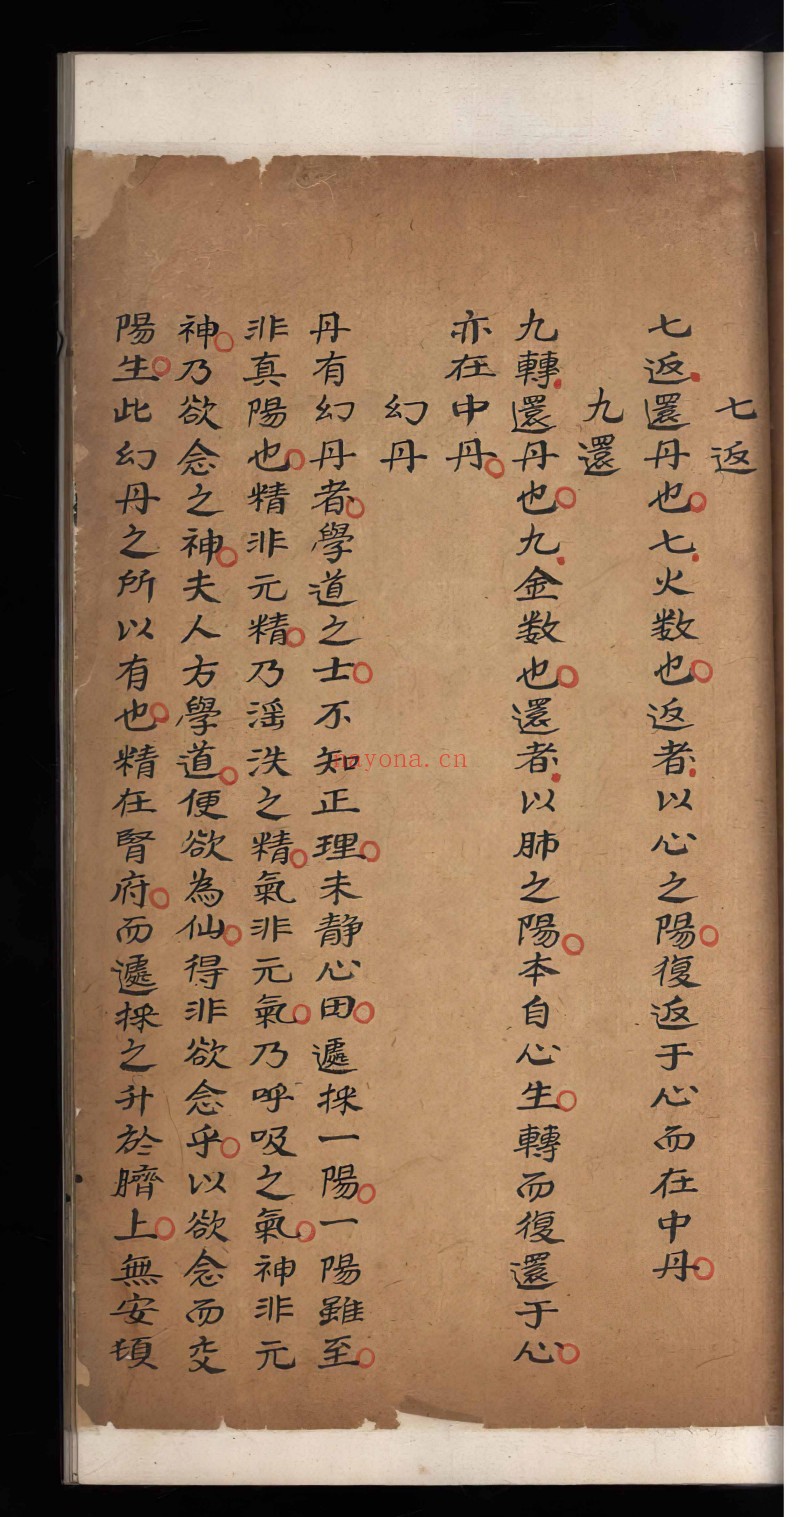 七返
七返還丹也七火数也返者以心之陽復返于心而在中丹
九還
九轉還丹也九金数也還者以肺之陽本自心生轉而復還于心
亦在中丹
幻丹
丹有幻丹者學道之士不知正理未静心田遽採一陽一陽雖至
非真陽也精非元精乃滛泆之精氣非元氣乃呼吸之氣神非元
神乃欲念之神夫人方學道便欲為仙得非欲念乎以欲念而交
陽生此幻丹之所以有也精在腎府而遽採之升於臍上無安頓
nayona.cn